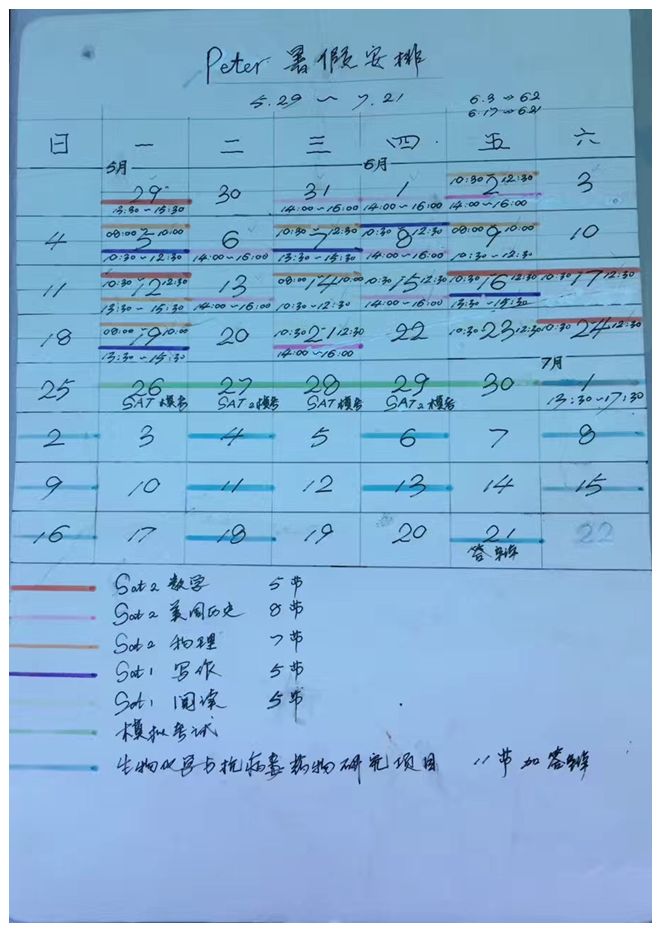 Peter 暑假安排
5.29 ~ 7.21
6.3 → 6.2
6.17 → 6.21
日 一 二 三 四 五 六
5月 6月
29 30 31 1 2 3
10:30~12:30
13:30~15:30 14:00~16:00 14:00~16:00 14:00~16:00
08:00~10:00 10:30~12:30 10:30~12:30 08:00~10:00
4 5 6 7 8 9 10
10:30~12:30 14:00~16:00 13:30~15:30 14:00~16:00 10:30~12:30
10:30~12:30 08:00~10:00 10:30~12:30 10:30~12:30 10:30~12:30
11 12 13 14 15 16 17
13:30~15:30 14:00~16:00 10:30~12:30 14:00~16:00 13:30~15:30
08:00~10:00 10:30~12:30 10:30~12:30 10:30~12:30
18 19 20 21 22 23 24
13:30~15:30 14:00~16:00
7月
25 26 27 28 29 30 1
SAT模考 SAT2模考 SAT模考 SAT2模考 13:30~17:30
2 3 4 5 6 7 8
9 10 11 12 13 14 15
16 17 18 19 20 21 22
答辩
Sat2 数学 5节
Sat2 美国历史 8节
Sat2 物理 7节
Sat1 写作 5节
Sat1 阅读 5节
模拟考试
生物化学与抗病毒药物研究项目 11节加答辩